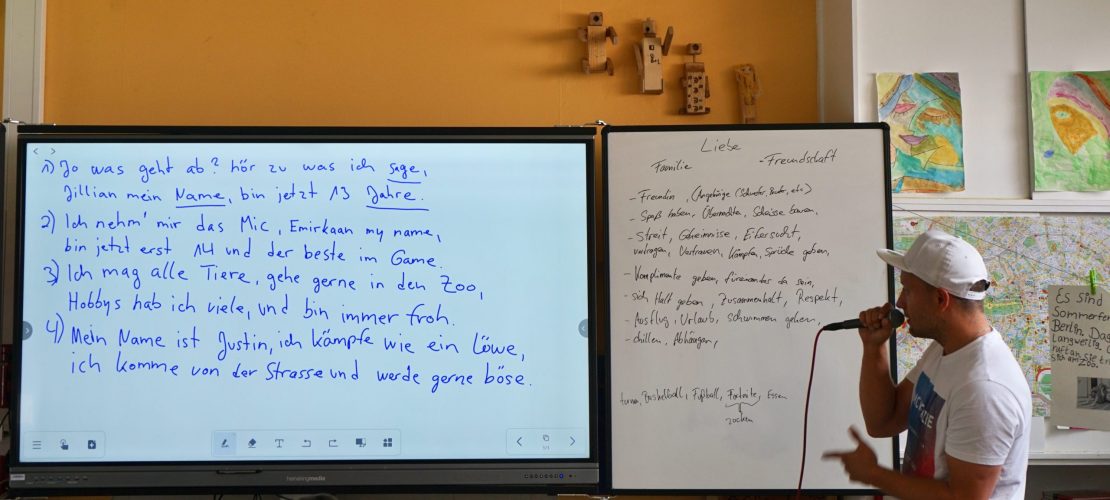 1) Jo was geht ab? hör zu was ich sage,
Jillian mein Name, bin jetzt 13 Jahre.
2) Ich nehm' mir das Mic, Emirkaan my name,
bin jetzt erst 14 und der beste im Game.
3) Ich mag alle Tiere, gehe gerne in den Zoo,
Hobbys hab ich viele, und bin immer froh.
4) Mein Name ist Justin, ich kämpfe wie ein Löwe,
ich komme von der Strasse und werde gerne böse.
Liebe
Familie - Freundschaft
- Freundin, (Angehörige (Schwester, Bruder, etc.)
- Spaß haben, Übernachten, Scheisse bauen,
- Streit, Geheimnisse, Eifersucht,
vertragen, Vertrauen, Kämpfen, Sprüche geben,
- Komplimente geben, füreinander da sein,
- sich Halt geben, Zusammenhalt, Respekt,
- Ausflug, Urlaub, schwimmen gehen,
- chillen, Abhängen,
turnen, Basketball, Fußball, Fortnite, Essen
zocken
Es sind
Sommerfer
Berlin. Das
Langweilig.